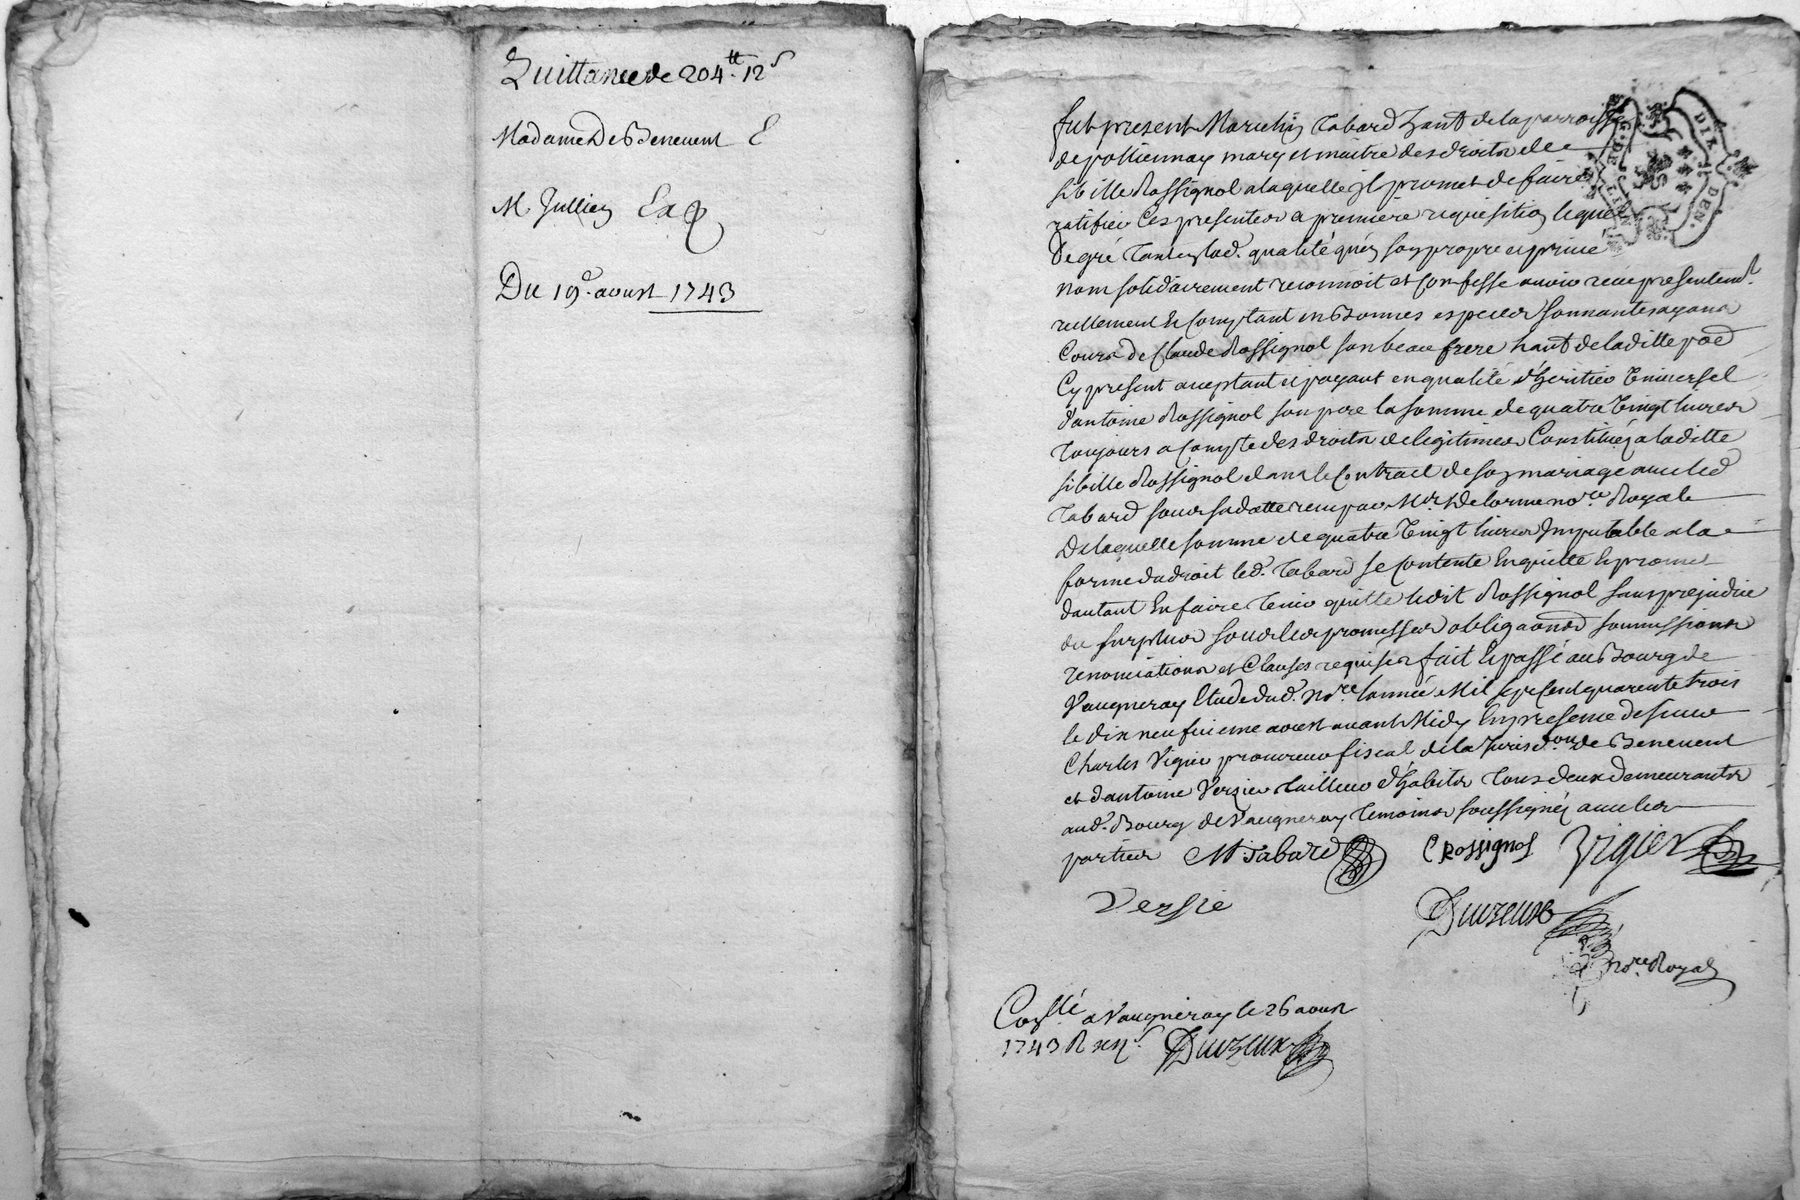 Quittance de 204tt. 12s
Madame De Benevent E
M. Jullien Ex
Du 19e. aoust 1743
G. DE LION
DIX D. DEN.
fut present Mathi Tabard hant de la parroisse
de pollionnay mary et maitre des droits de
sibille Rossignol a laquelle il promet de faire
ratifier Ces presentes a premiere requisition lequel
de gré tant en lad. qualité qu'en son propre et privé
nom solidairement reconnoit et Confesse avoir receu presentemt.
reellement et Comptant en bonnes especes sonnantes ayans
Cours de Claude Rossignol son beau frere hant de la ditte pae
Cy present aceptant et payant en qualité d'heritier Universel
d'antoine Rossignol son pere la somme de quatre Vingt livres
Toujours a Compte des droits de legitimes Constitués a la ditte
sibille Rossignol dans le Contract de son mariage avec led
Tabard sous sa datte receu par Mer. Delorme nore. Royal
De laquelle somme de quatre Vingt livres Imputable a la
forme du droit led. Tabard se Contente En quitte et promet
d'autant En faire Tenir quitte ledit Rossignol sans prejudice
du surplus sous les promesses obligaons soumissions
renonciations et Clauses requises fait et passé au Bourg de
Vaugneray Etude dud. Nore. l'année Mil sept Cent quarente trois
le dix neufvieme aoust avant Midy En presence de sieur
Charles Vigier procureur fiscal de la Jurisd.on de Benevent
et d'antoine Verzier tailleur d'habits Tous deux demeurants
aud. Bourg de Vaugneray Temoins soussignés avec les
parties M Tabard C Rossignol Vigier
Versie
Duvzeux
Nore. Royal
Conllé a Vaugneray le 26 aoust
1743 R xx Duvzeux